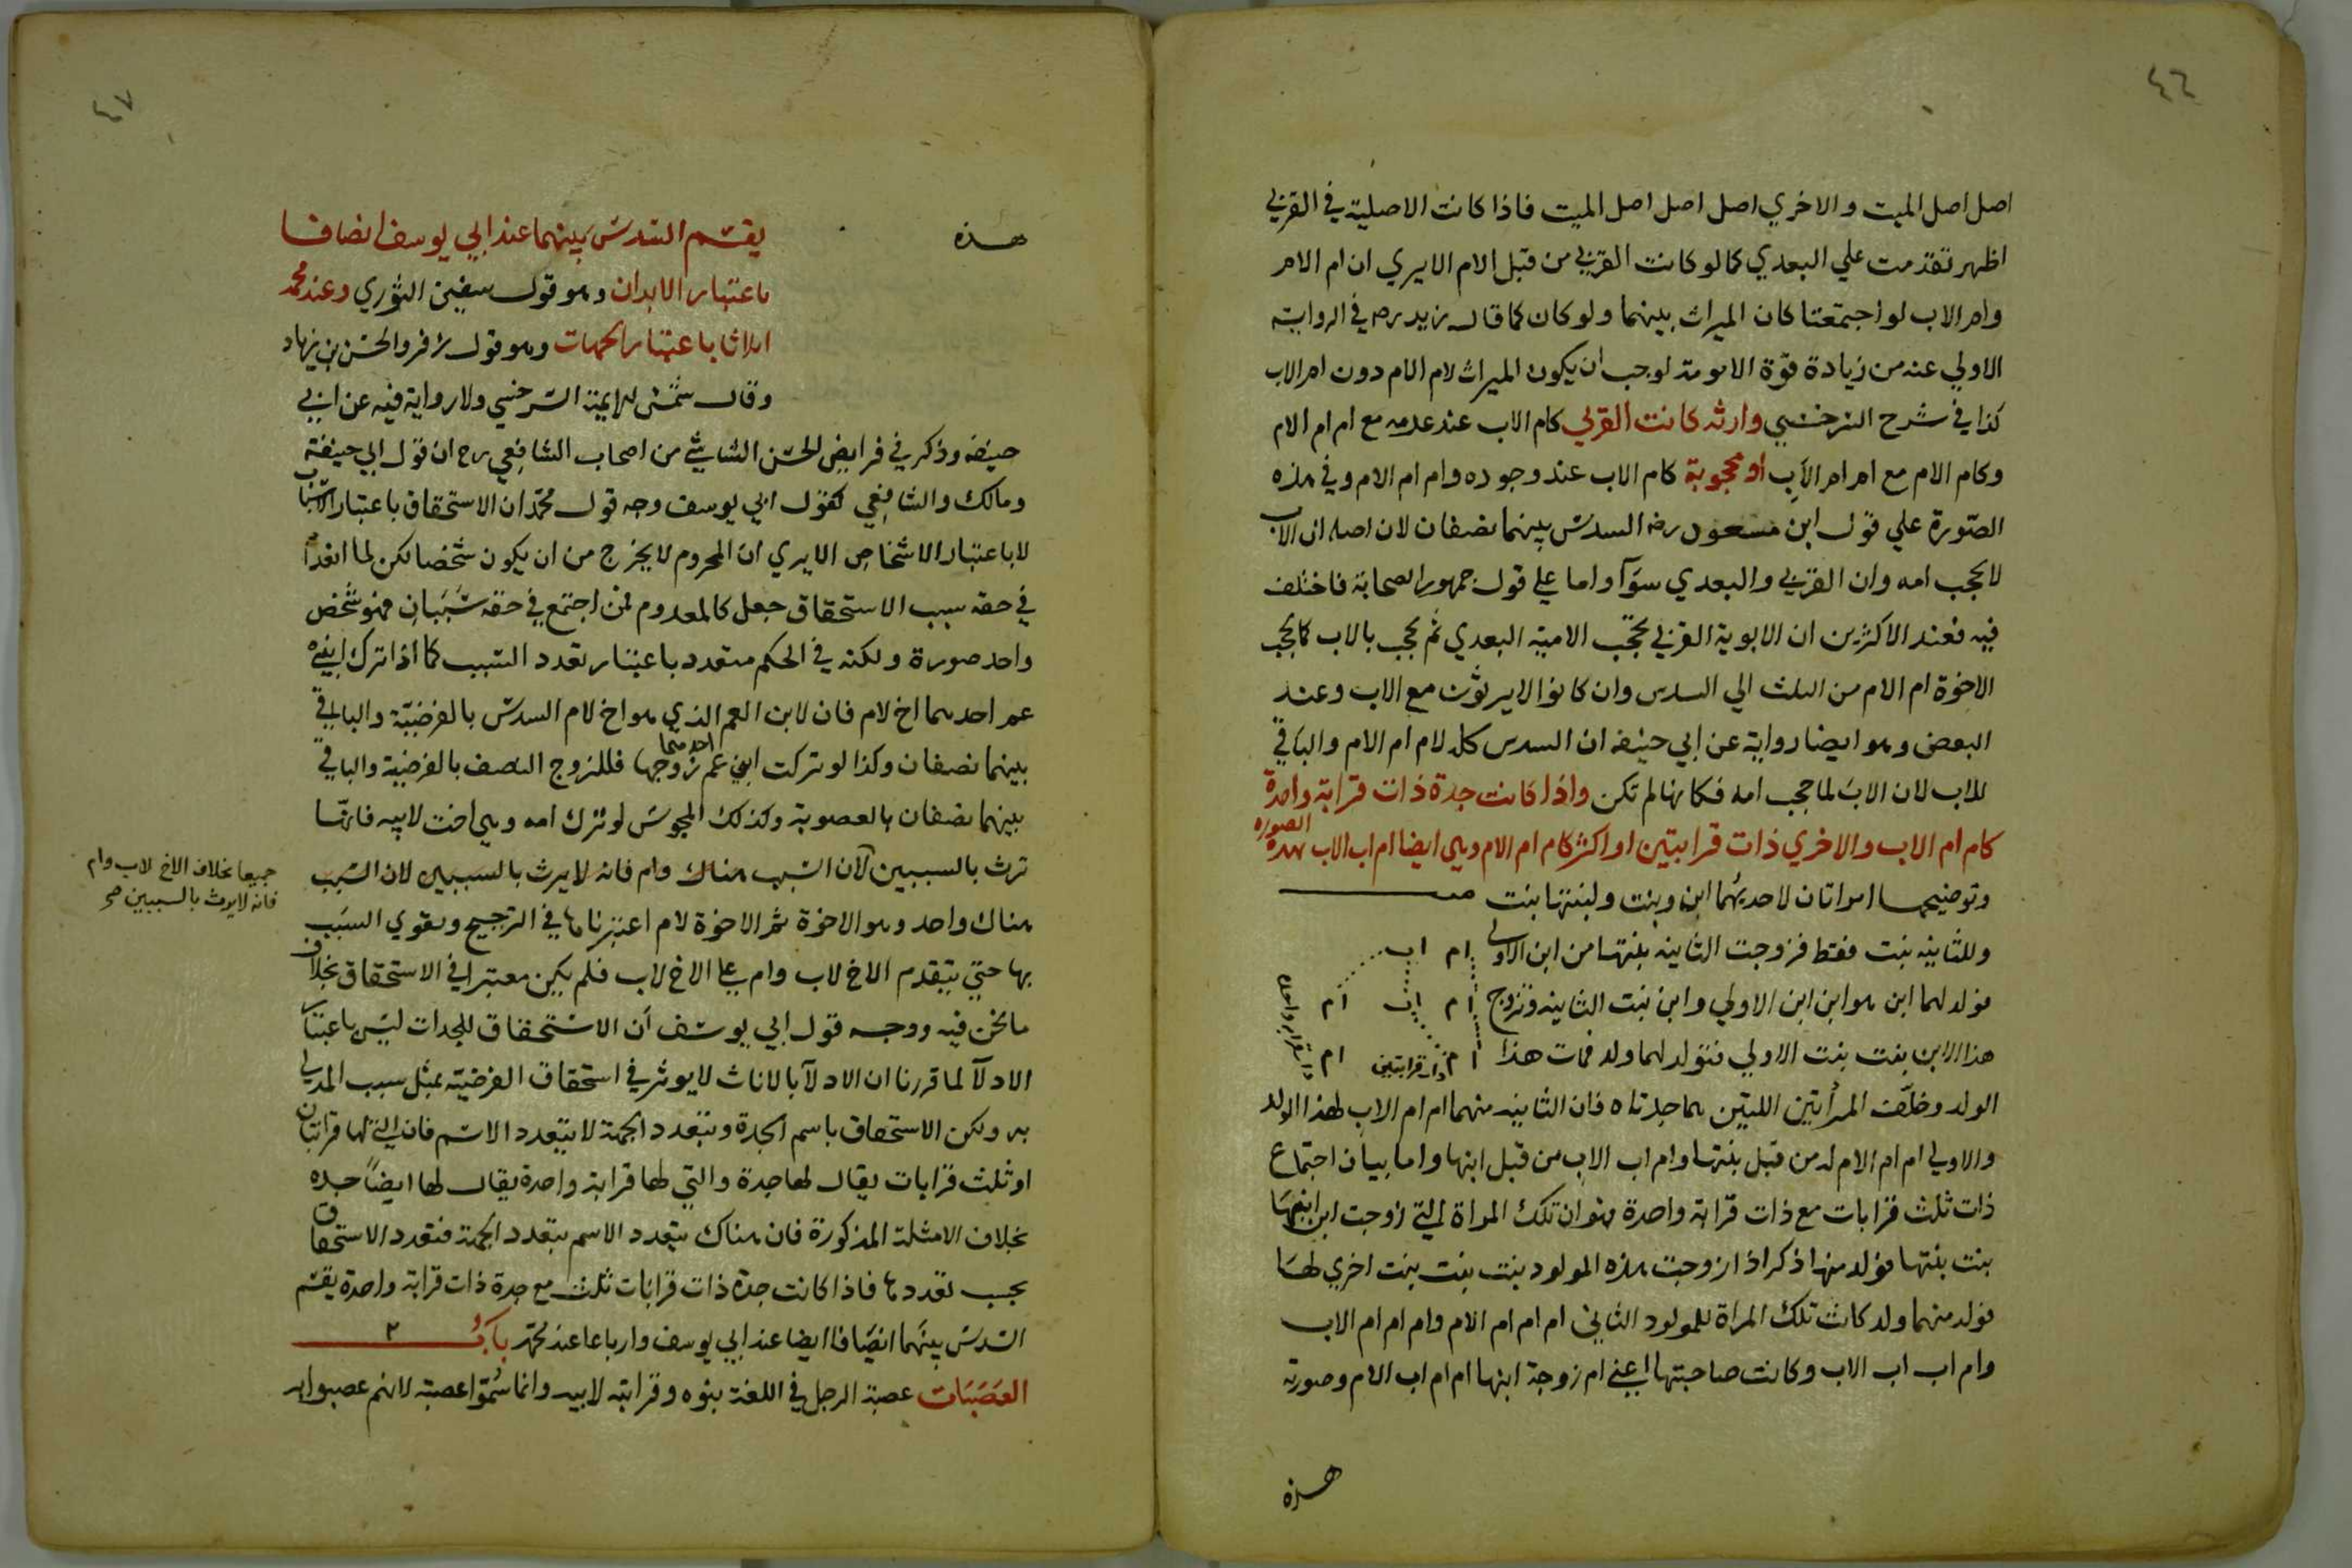 ٤٦
اصل اصل الميت والاخري اصل اصل اصل الميت فاذا كانت الاصلية في القربي
اظهر تقدمت علي البعدي كما لو كانت القربي من قبل الام الايري ان ام الام
وام الاب لو اجتمعتا كان الميراث بينهما ولو كان كما قال زيد رضه في الرواية
الاولي عنه من زيادة قوّة الامومة لوجب ان يكون الميراث لام الام دون ام الاب
كذا في شرح السرخسي وارثة كانت القربي كام الاب عند عدمه مع ام ام الام
وكام الام مع ام ام الاب او محجوبة كام الاب عند وجوده وام ام الام وفي هذه
الصّورة علي قول ابن مسعود رضه السدس بينهما نصفان لان اصله ان الاب
لا يحجب امه وان القربي والبعدي سوآ واما علي قول جمهور الصحابة فاختلف
فيه فعند الاكثرين ان الابوية القربي تحجب الامية البعدي ثم تحجب بالاب كما يحجب
الاخوة ام الام من الثلث الي السدس وان كانوا لا يرثون مع الاب وعند
البعض وهو ايضا رواية عن ابي حنيفه ان السدس كله لام ام الام والباقي
للاب لان الاب لما حجب امه فكانها لم تكن واذا كانت جدة ذات قرابة واحدة
كام ام الاب والاخري ذات قرابتين او اكثر كام ام الام وهي ايضا ام اب الاب بهذه الصورة
وتوضيحها امراتان لاحديهما ابن وبنت ولبنتها بنت
وللثانية بنت فقط فزوجت الثانية بنتها من ابن الاولي ام اب
فولد لهما ابن هو ابن ابن الاولي وابن بنت الثانية فتزوج ام اب ام
هذا الابن بنت بنت الاولي فتولد لهما ولد فمات هذا ام ذات قرابتين ام ذات قرابة واحدة
الولد وخلّف المرأتين اللتين هما جدتاه فان الثانية منهما ام ام الاب لهذا الولد
والاولي ام ام الام له من قبل بنتها وام اب الاب من قبل ابنها واما بيان اجتماع
ذات ثلث قرابات مع ذات قرابة واحدة فهو ان تلك المراة التي زوجت ابن ابنها
بنت بنتها فولد منهما ذكر اذا زوجت هذه المولود بنت بنت بنت اخري لها
فولد منهما ولد كانت تلك المراة للمولود الثاني ام ام ام الام وام ام ام الاب
وام اب اب الاب وكانت صاحبتها اعني ام زوجة ابنها ام ام اب الام وصورته
هذه
٤٧
هذه
يقسم السدس بينهما عند ابي يوسف انصافا
باعتبار الابدان وهو قول سفين الثوري وعند محمد
اثلاثا باعتبار الجهات وهو قول زفر والحسن بن زياد
وقال شمس الايمة السرخسي ولا رواية فيه عن ابي
حنيفه وذكر في فرايض الحسن الشاشي من اصحاب الشافعي رح ان قول ابي حنيفة
ومالك والشافعي كقول ابي يوسف وجه قول محمّد ان الاستحقاق باعتبار الاسباب
لا باعتبار الاشخاص الايري ان المحروم لا يخرج من ان يكون شخصا لكن لما انعدم
في حقه سبب الاستحقاق جعل كالمعدوم فمن اجتمع في حقه سببان فهو شخص
واحد صورة ولكنه في الحكم متعدد باعتبار تعدد السبب كما اذا ترك ابني
عم احدهما اخ لام فان لابن العم الذي هو اخ لام السدس بالفرضيّة والباقي
بينهما نصفان وكذا لو تركت ابني عم احدهما زوجها فللزوج النصف بالفرضية والباقي
بينهما نصفان بالعصوبة وكذلك المجوسي لو ترك امه وهي اخت لابيه فانها
ترث بالسببين لان السبب هناك وام فانه لا يرث بالسببين لان السبب
جميعا بخلاف الاخ لاب وام
فانه لا يرث بالسببين صح
هناك واحد وهو الاخوة ثم الاخوة لام اعتبرناها في الترجيح وتقوي السبب
بها حتي يتقدم الاخ لاب وام علي الاخ لاب فلم يكن معتبرا في الاستحقاق بخلاف
ما نحن فيه ووجه قول ابي يوسف أن الاستحقاق للجدات ليس باعتبار
الادلآ لما قررنا ان الادلآ بالاناث لا يوثر في استحقاق الفرضيّة بمثل سبب المدلي
به ولكن الاستحقاق باسم الجدة وبتعدد الجهة لا يتعدد الاسم فان التي لها قرابتان
او ثلث قرابات يقال لها جدة والتي لها قرابة واحدة يقال لها ايضاً جده
بخلاف الامثلة المذكورة فان هناك يتعدد الاسم بتعدد الجهة فتعدد الاستحقاق
بحسب تعددها فاذا كانت جدة ذات قرابات ثلث مع جدة ذات قرابة واحدة يقسم
السدس بينهما انصافا ايضا عند ابي يوسف وارباعا عند محمّد باب
العصبات عصبة الرجل في اللغة بنوه وقرابته لابيه وانما سُمّوا عصبة لانهم عصبوا به